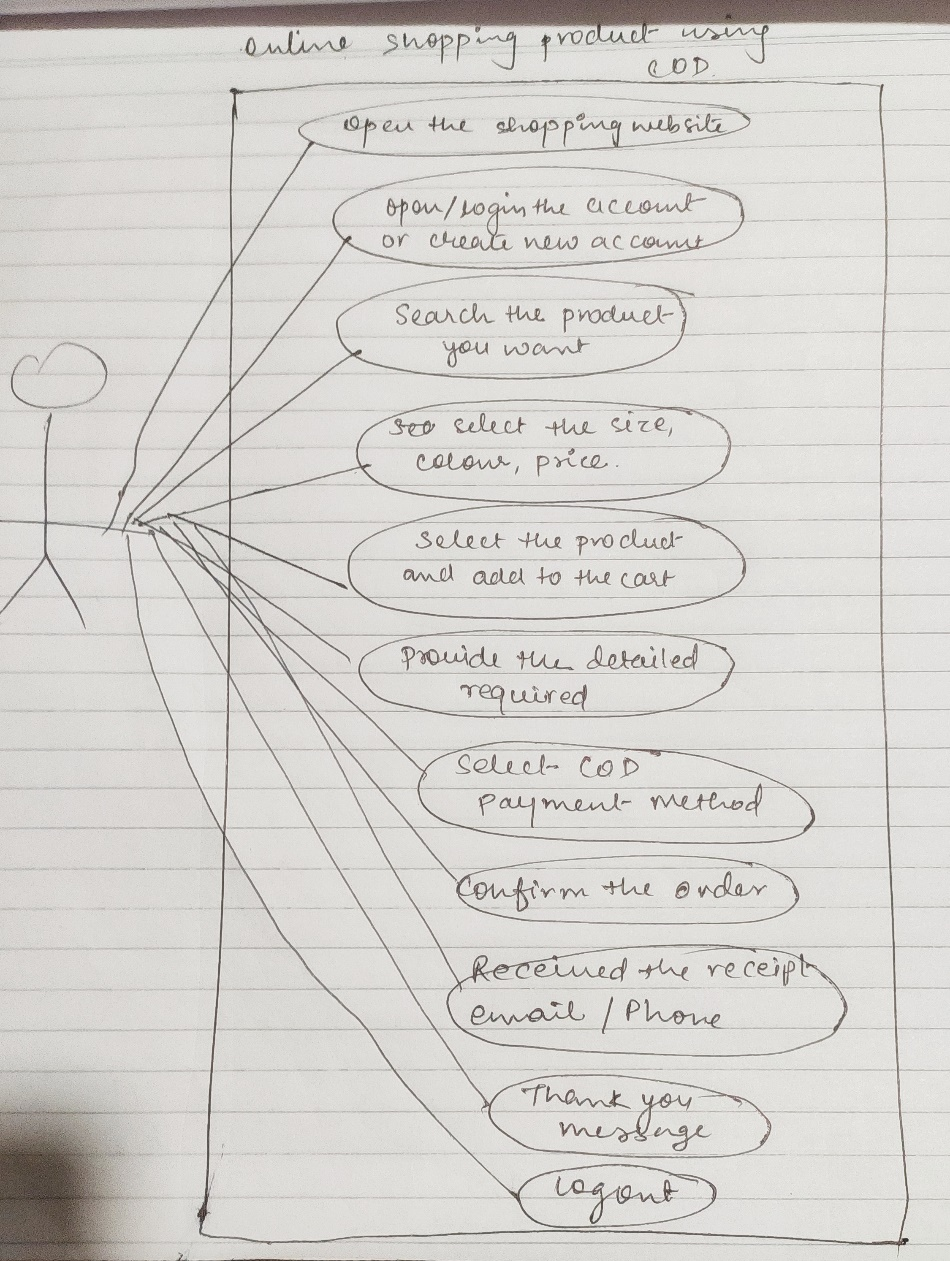 online shopping product using
COD.
open the shopping website
open/login the account
or create new account
Search the product
you want
select the size,
colour, price.
select the product
and add to the cart
provide the detailed
required
Select COD
payment method
confirm the order
Received the receipt
email / Phone
Thank you
message
logout